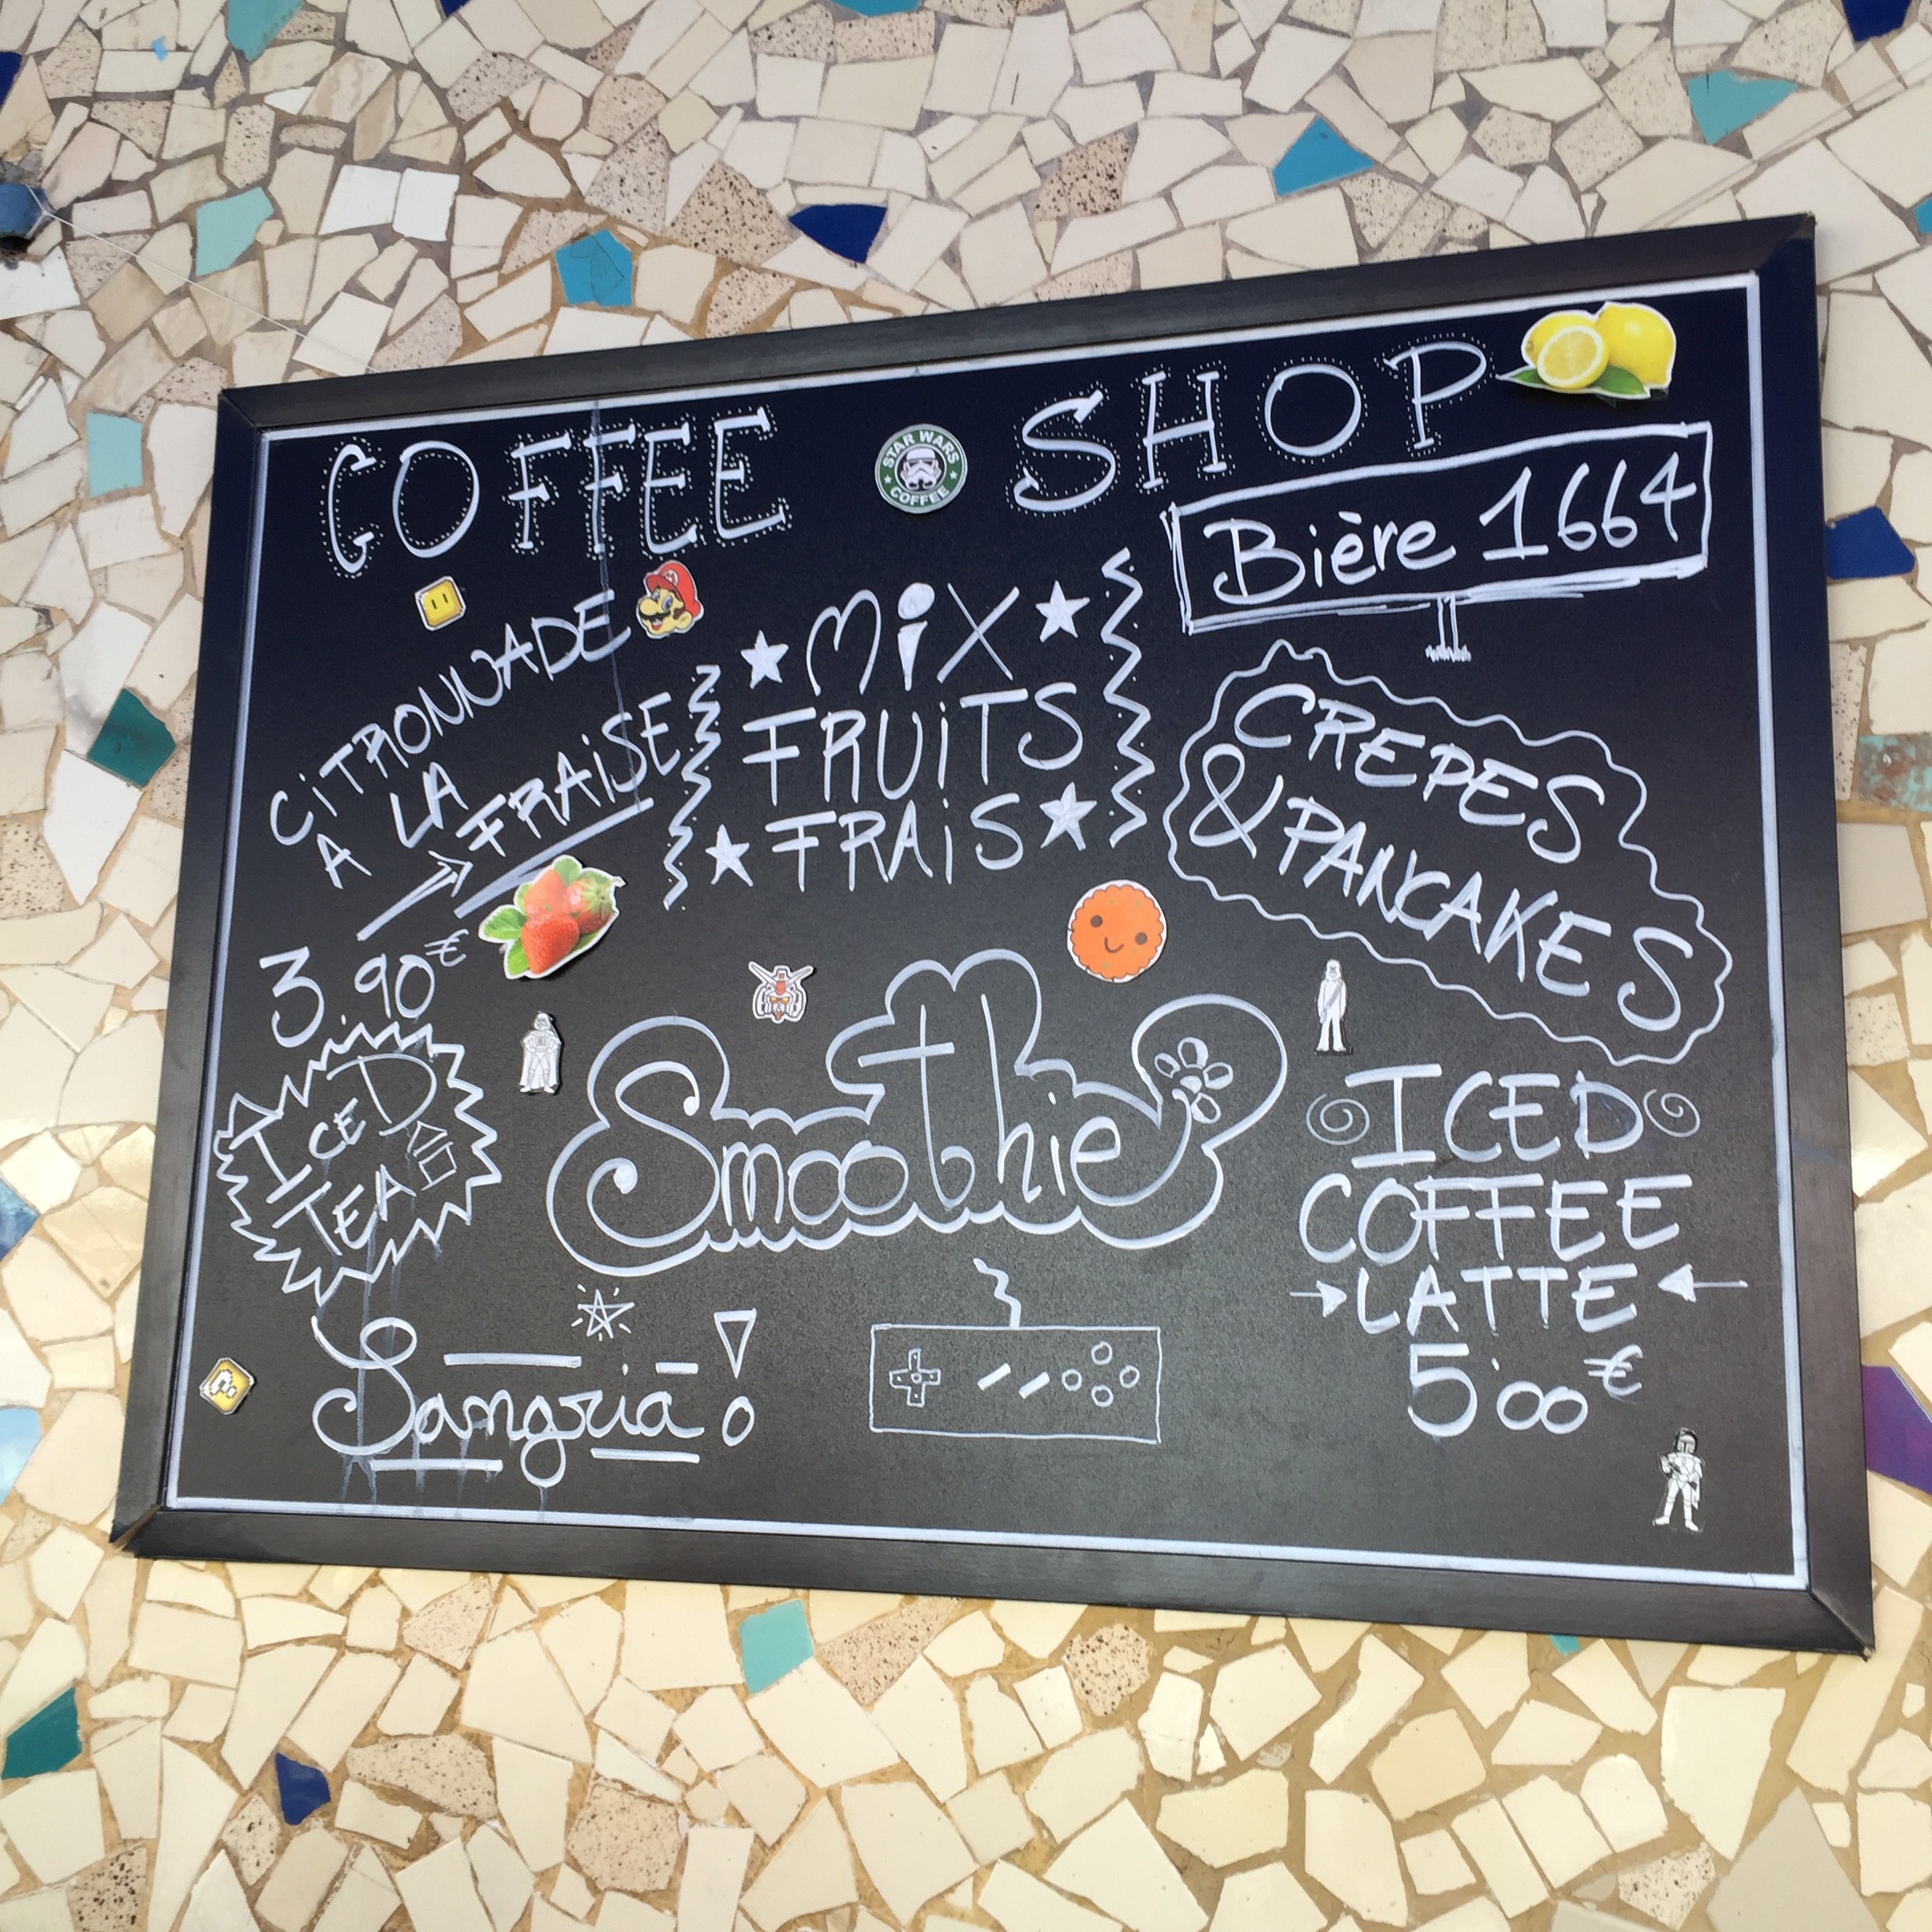 COFFEE SHOP
STAR WARS
COFFEE
Bière 1664
CiTRONNADE
A LA
FRAiSE
3.90€
MiX
FRUiTS
FRAiS
CREPES
& PANCAKES
ICED
TEA
Smoothie
ICED
COFFEE
LATTE
5.00€
Sangria !